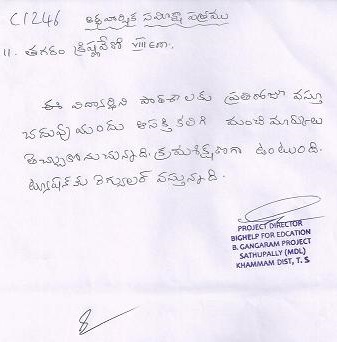 C1246 అర్ధవార్షిక సమీక్షా పత్రము
11. తగరం క్రిష్ణవేణి VIII
ఈ విద్యార్థిని పాఠశాలకు ప్రతిరోజూ వస్తూ
చదువుయందు ఆసక్తి కలిగి మంచి మార్కులు
తెచ్చుకొనుచున్నాది. క్రమశిక్షణగా ఉంటుంది.
ట్యూషన్‌కు రెగ్యులర్ వస్తున్నాది.
PROJECT DIRECTOR
BIGHELP FOR EDCATION
B. GANGARAM PROJECT
SATHUPALLY (MDL)
KHAMMAM DIST, T. S